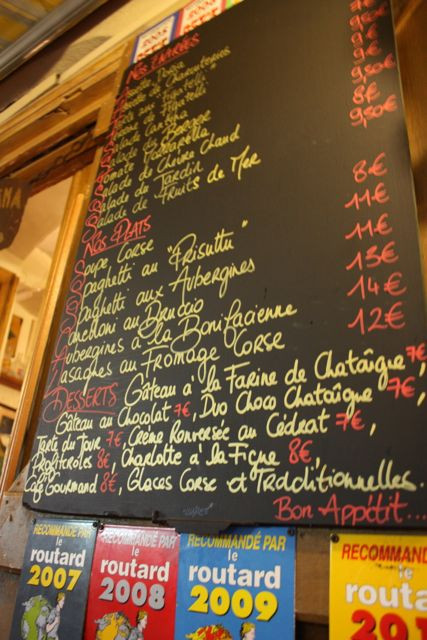 2005
2006
Nos Entrées
9€
9€
9€
9,50€
8€
9,50€
Salade Corse
Salade du Berger
Tomate Mozzarella
Salade de Chèvre Chaud
Salade du Jardin
Salade de Fruits de Mer
Nos Plats
Soupe Corse 8€
Spaghetti au "Prisuttu" 11€
Spaghetti aux Aubergines 11€
Canelloni au Brocciu 13€
Aubergines à la Bonifacienne 14€
Lasagnes au Fromage Corse 12€
Desserts Gâteau à la Farine de Chataîgne 7€
Gâteau au Chocolat 7€, Duo Choco Chataîgne 7€,
Tarte du Jour 7€, Crème Renversée au Cédrat 7€,
Profiteroles 8€, Charlotte à la Figue 8€,
Café Gourmand 8€, Glaces Corse et Traditionnelles.
Bon Appétit...
RECOMMANDÉ PAR
le
routard
2007
RECOMMANDÉ PAR
le
routard
2008
RECOMMANDÉ PAR
le
routard
2009
RECOMMAND
le
routa
201